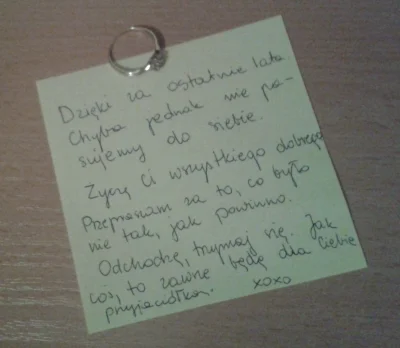 Dzięki za ostatnie lata
Chyba jednak nie pa-
sujemy do siebie.
Życzę Ci wszystkiego dobrego
Przepraszam za to, co było
nie tak, jak powinno.
Odchodzę, trzymaj się. Jak
coś, to zawsze będę dla Ciebie
przyjaciółką. xoxo